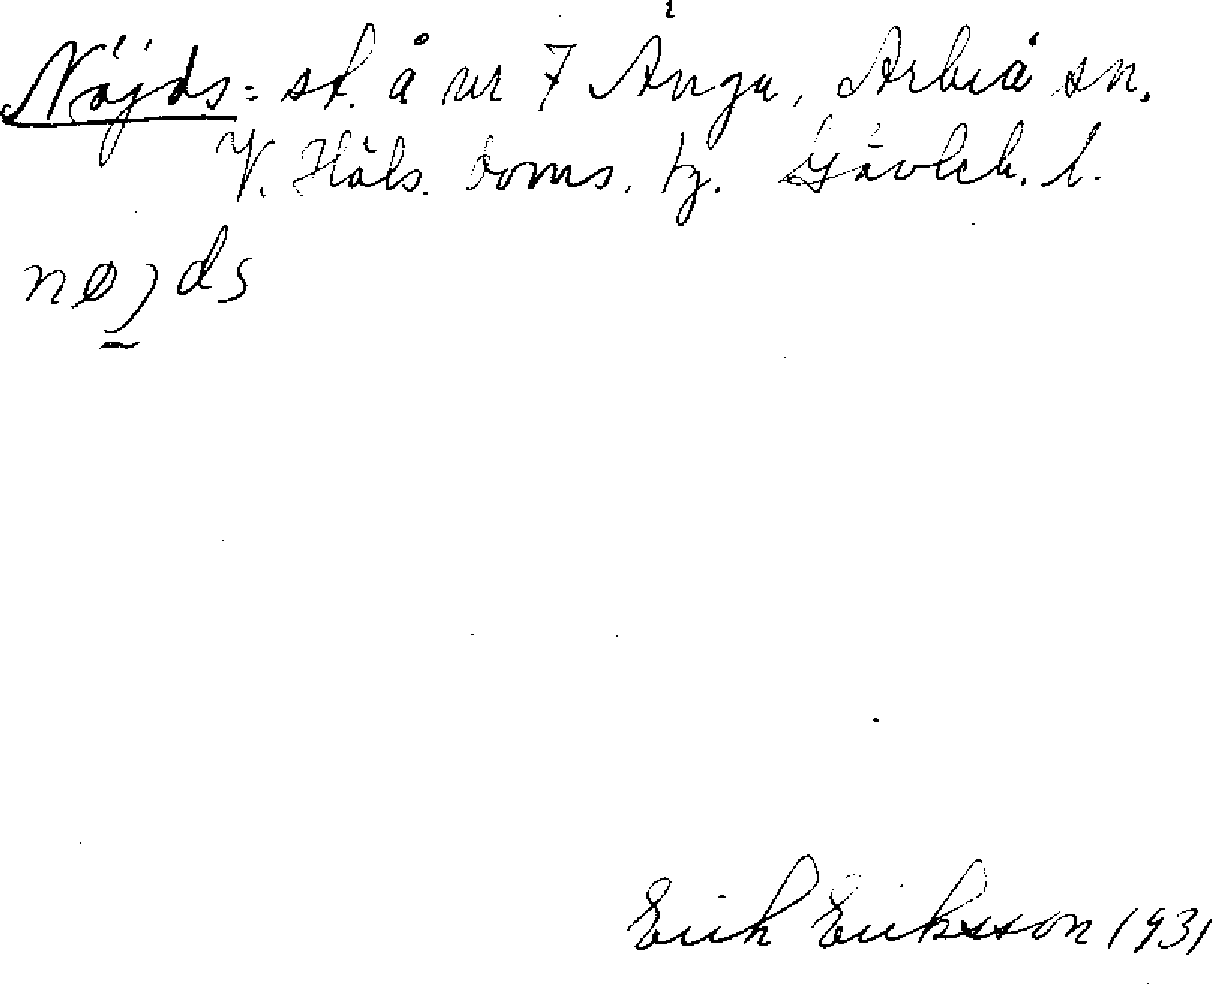 Nöjds: sk. å nr 7 Änga, Arbrå sn.
V. Häls. doms. tg. Gävleb. l.
nøjds
Erik Eriksson 1931